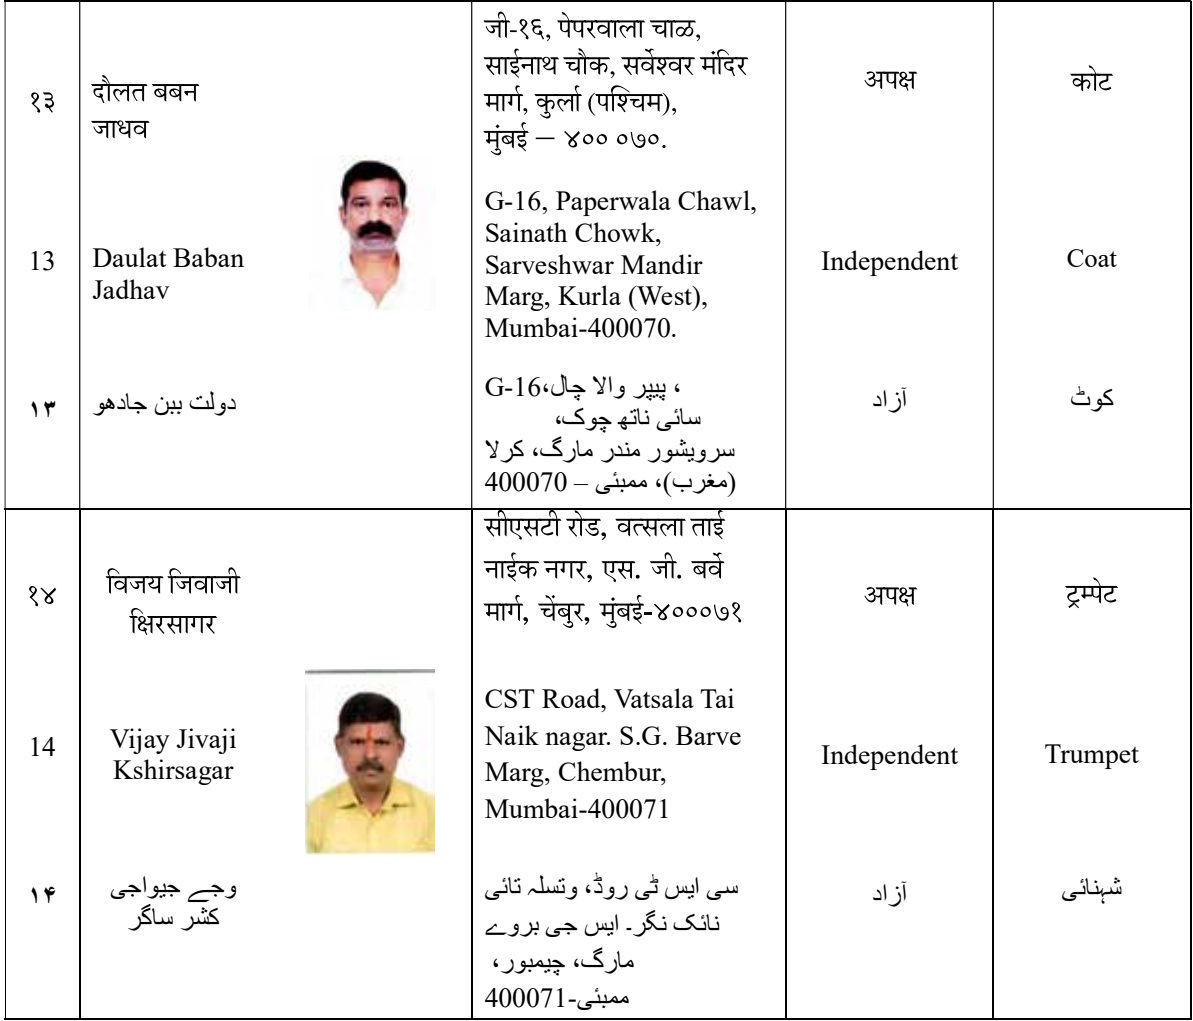 १३
दौलत बबन
जाधव
जी-१६, पेपरवाला चाळ,
साईनाथ चौक, सर्वेश्वर मंदिर
मार्ग, कुर्ला (पश्चिम),
मुंबई – ४०० ०७०.
अपक्ष
कोट
13
Daulat Baban
Jadhav
G-16, Paperwala Chawl,
Sainath Chowk,
Sarveshwar Mandir
Marg, Kurla (West),
Mumbai-400070.
Independent
Coat
۱۳
دولت ببن جادھو
G-16، پیپر والا چال،
سائی ناتھ چوک،
سرویشور مندر مارگ، کرلا
(مغرب)، ممبئی – 400070
آزاد
کوٹ
१४
विजय जिवाजी
क्षिरसागर
सीएसटी रोड, वत्सला ताई
नाईक नगर, एस. जी. बर्वे
मार्ग, चेंबुर, मुंबई-४०००७१
अपक्ष
ट्रम्पेट
14
Vijay Jivaji
Kshirsagar
CST Road, Vatsala Tai
Naik nagar. S.G. Barve
Marg, Chembur,
Mumbai-400071
Independent
Trumpet
۱۴
وجے جیواجی
کشر ساگر
سی ایس ٹی روڈ، وتسلہ تائی
نائک نگر۔ ایس جی بروے
مارگ، چیمبور،
ممبئی-400071
آزاد
شہنائی